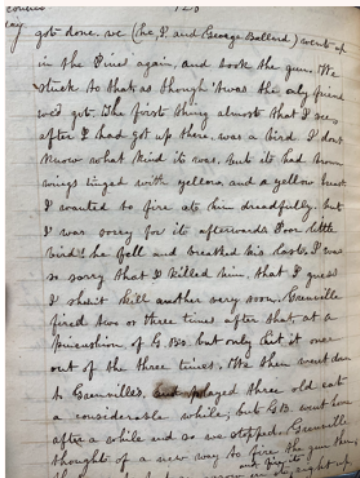 128
got done, we (he, I and George Ballard) went up
in the Pines again, and took the gun. We
stuck to that as though 'twas the only friend
we'd got. The first thing almost that I see,
after I had got up there, was a bird I dont
know what kind it was, but it had brown
wings tinged with yellow, and a yellow breast
I wanted to fire at him dreadfully, but
I was sorry for it afterwards Poor little
bird! he fell and breathed his last. I was
so sorry that I killed him, that I guess
I shan't kill another very soon. Grenville
fired two or three times after that at a
pincushion of G. B's but only hit it once
out of the three times. We then went down
to Grenville's, and played three old cat
a considerable while; but G.B. went home
after a while and so we stopped. Grenville
thought of a new way to fire the gun then,
and
arrow in it, right up